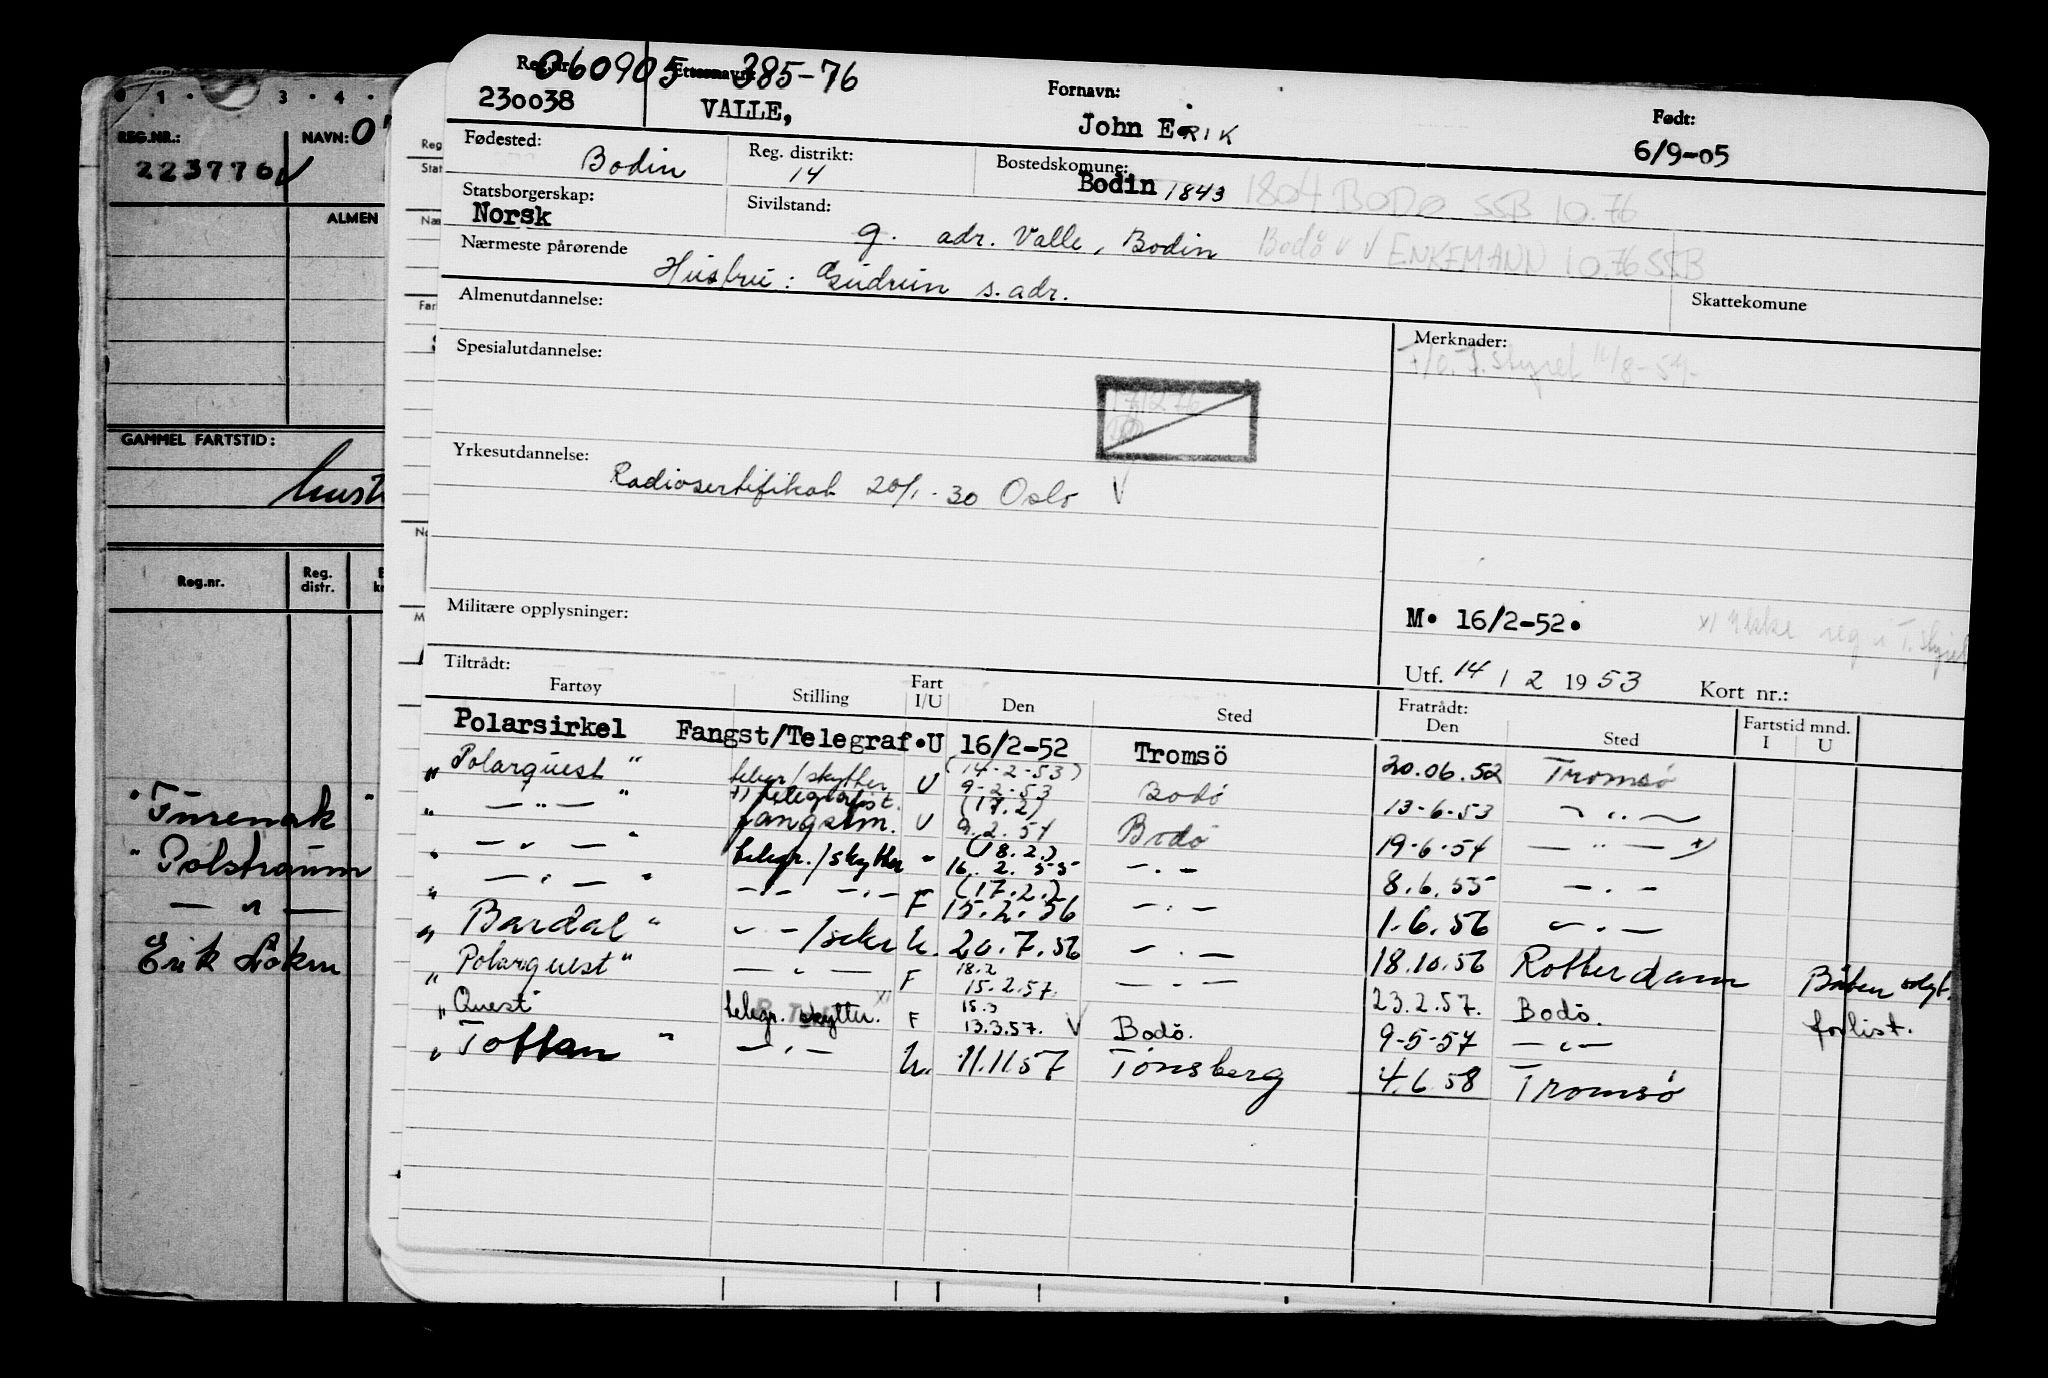 060905 385-76
Reg.nr. Etternavn: Fornavn: Født:
230038 VALLE, John ERIK 6/9-05
Fødested: Bodin Reg. distrikt: 14 Bostedskomune: Bodin 1843 1804 BODØ SSB 10.76
Statsborgerskap: Norsk Sivilstand: g. adr. Valle, Bodin Bodö v v ENKEMANN 10.76 SSB
Nærmeste pårørende Husfru: Gudrun s. adr.
Almenutdannelse: Skattekomune
Spesialutdannelse: Merknader:
Yrkesutdannelse: Radiosertifikat 20/1-30 Oslo V
Militære opplysninger: M. 16/2-52.
x) Ikke reg i T. styret
Utf. 14 / 2 19 53 Kort nr.:
Tiltrådt: Fratrådt: Fartstid mnd.
Fartøy Stilling Fart I/U Den Sted Den Sted I U
Polarsirkel Fangst/Telegraf. U 16/2-52 Tromsö 20.06.52 Tromsø
" Polarquest " telegr/skytter U (14-2-53) 9-2-53 Bodö 13-6-53 — " —
" — " — " x) telegrafist. fangstm. U (17.2) 9.2.54 Bodö 19-6-54 — " — x)
" — " — " telegr./skytter " (18.2.) 16.2.55 — " — 8.6.55 — " —
" — " — " — " — — " — F (17.2.) 15.2.56 — " — 1.6.56 — " —
" Bardal " — " — /sekr U. 20.7.56 — " — 18.10.56 Rotterdam
" Polarquest " — " — F 18.2 15.2.57. — " — 23.2.57. Bodö. Båten solgt. forlist.
" Quest telegr. skytter. F 15.3 13.3.57. V Bodö. 9-5-57 — " —
" Tottan " — " — U. 11.11.57 Tønsberg 4.6.58 Tromsø
1 3 4
REG.NR.: NAVN:
223776 V
ALMEN
GAMMEL FARTSTID:
Reg.nr. Reg. distr.
" Turenak "
" Polstraum
— " —
Erik